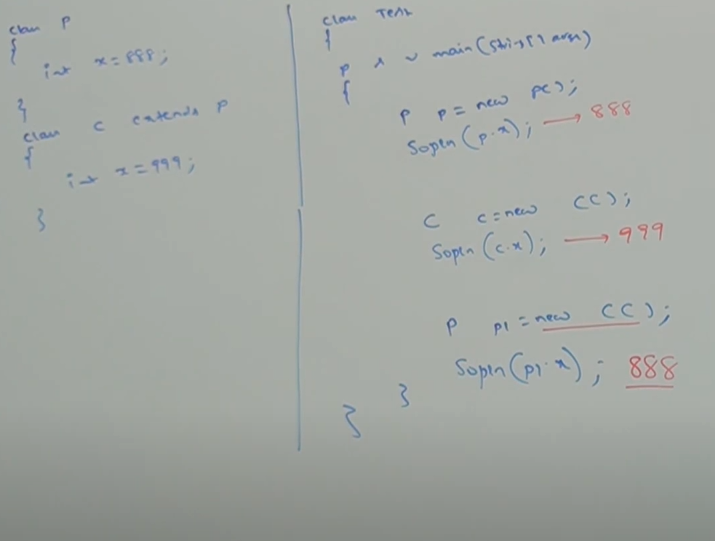 class P
{
int x=888;
}
class C extends P
{
int x=999;
}
class Test
{
p s v main(String[] args)
{
P p = new P();
Sopln(p.x); → 888
C c = new C();
Sopln(c.x); → 999
P p1 = new C();
Sopln(p1.x); 888
}
}